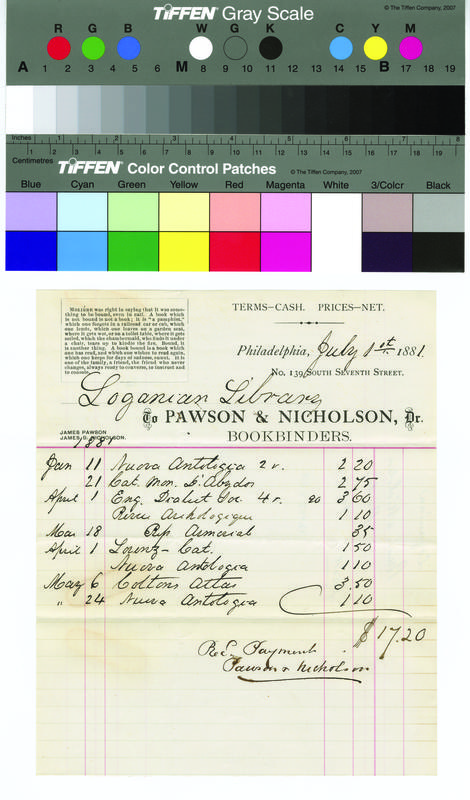 TIFFEN Gray Scale © The Tiffen Company, 2007
R G B W G K C Y M
A 1 2 3 4 5 6 M 8 9 10 11 12 13 14 15 B 17 18 19
Inches 1 2 3 4 5 6 7 8
Centimetres 1 2 3 4 5 6 7 8 9 10 11 12 13 14 15 16 17 18 19
TIFFEN Color Control Patches © The Tiffen Company, 2007
Blue Cyan Green Yellow Red Magenta White 3/Color Black
MOLIÈRE was right in saying that it was some-
thing to be bound, even in calf. A book which
is not bound is not a book; it is "a pamphlet,"
which one forgets in a railroad car or cab, which
one lends, which one leaves on a garden seat,
where it gets wet, or on a toilet table, where it gets
soiled, which the chambermaid, who finds it under
a chair, tears up to kindle the fire. Bound, it
is another thing. A book bound is a book which
one has read, and which one wishes to read again,
which one keeps for days of sadness, ennui. It is
one of the family, a friend, the friend who never
changes, always ready to converse, to instruct and
to console.
TERMS—CASH. PRICES—NET.
Philadelphia, July 1st 1881.
No. 139 SOUTH SEVENTH STREET.
Loganian Library
To PAWSON & NICHOLSON, Dr.
BOOKBINDERS.
JAMES PAWSON
JAMES B. NICHOLSON.
1881
Jan 11 Nuova Antologia 2 v. 2 20
21 Cat. Mon. D'Abydos 2 75
April 1 Eng. Dialect Soc 4 v. 90 3 60
Revue Archlogique 1 10
Mar 18 Rep Armorial 35
April 1 Lorenz - Cat. 1 50
Nuova Antologia 1 10
May 6 Coltons Atlas 3.50
" 24 Nuova Antologia 1 10
$17.20
Rec. Payment
Pawson & Nicholson